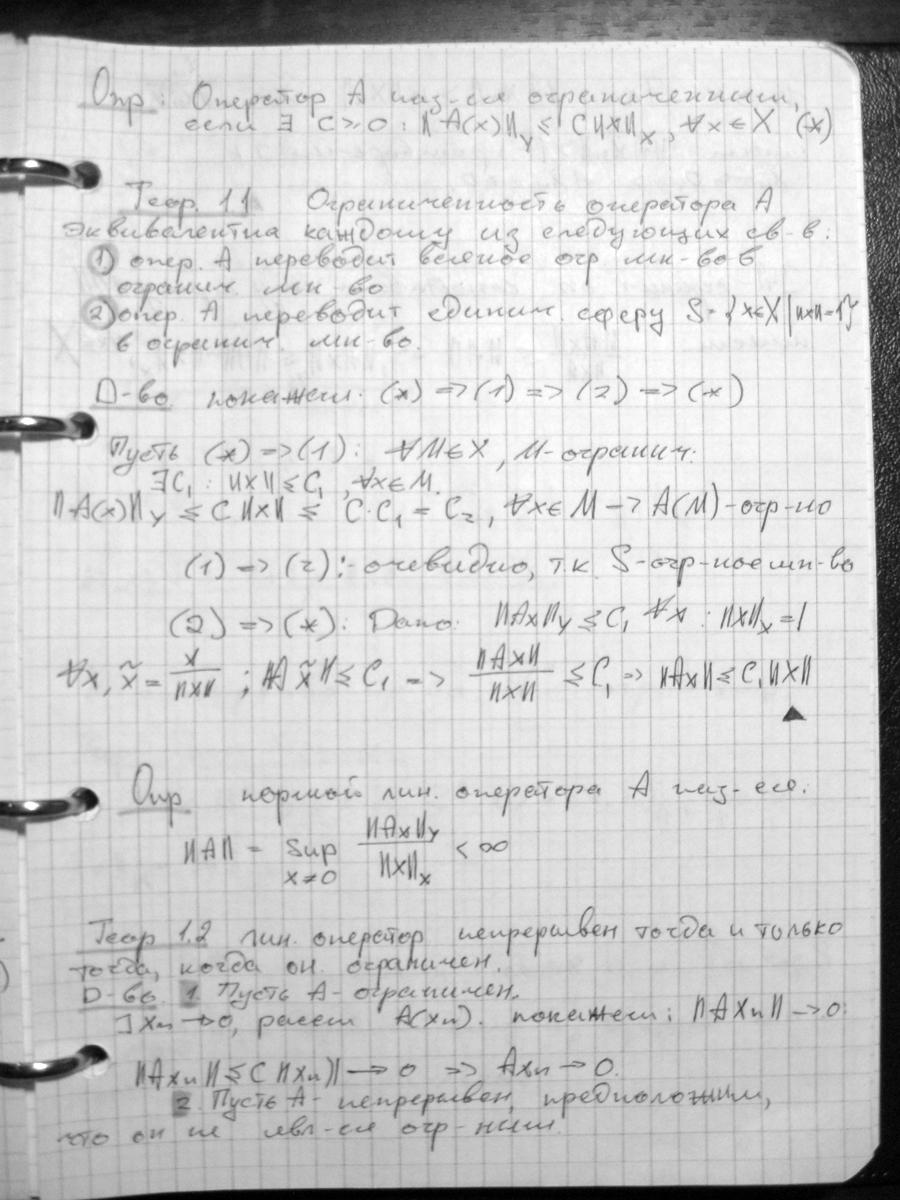 Опр: Оператор A наз-ся ограниченным,
если ∃ C ≥ 0 : ||A(x)||_Y ≤ C||x||_X, ∀x ∈ X (*)
Теор. 1.1 Ограниченность оператора A
эквивалентна каждому из следующих св-в:
1) опер. A переводит всякое огр мн-во в
огранич. мн-во
2) опер. A переводит единич. сферу S = {x∈X | ||x||=1}
в огранич. мн-во.
D-во покажем: (*) => (1) => (2) => (*)
Пусть (*) => (1): ∀M∈X, M-огранич.
∃C₁ : ||x|| ≤ C₁, ∀x∈M.
||A(x)||_Y ≤ C||x|| ≤ C·C₁ = C₂, ∀x∈M -> A(M)-огр-но
(1) => (2): - очевидно, т.к. S-огр-ное мн-во
(2) => (*): Дано: ||Ax||_Y ≤ C₁ ∀x : ||x||_X = 1
∀x, x̃ = x/||x|| ; ||Ax̃|| ≤ C₁ => ||Ax||/||x|| ≤ C₁ => ||Ax|| ≤ C₁||x||
▲
Опр нормой лин. оператора A наз-ся:
||A|| = sup_{x≠0} ||Ax||_Y/||x||_X < ∞
Теор 1.2 лин. оператор непрерывен тогда и только
тогда, когда он. ограничен.
D-во. 1. Пусть A- ограничен.
∃ xₙ → 0, рассм A(xₙ). покажем: ||Axₙ|| → 0:
||Axₙ|| ≤ C||xₙ|| → 0 => Axₙ → 0.
2. Пусть A- непрерывен, предположим,
что он не явл-ся огр-ным.